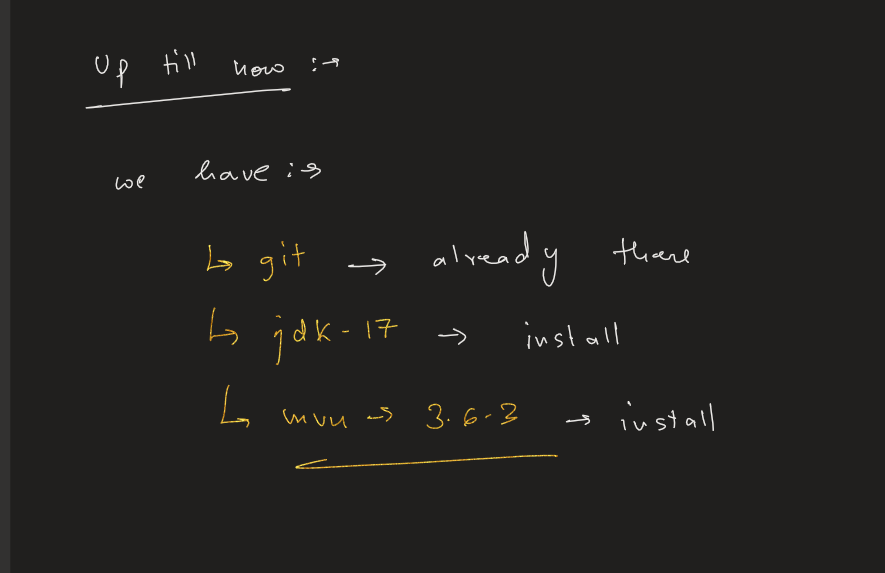 Up till now :→
we have :→
↳ git → already there
↳ jdk - 17 → install
↳ mvn → 3.6.3 → install